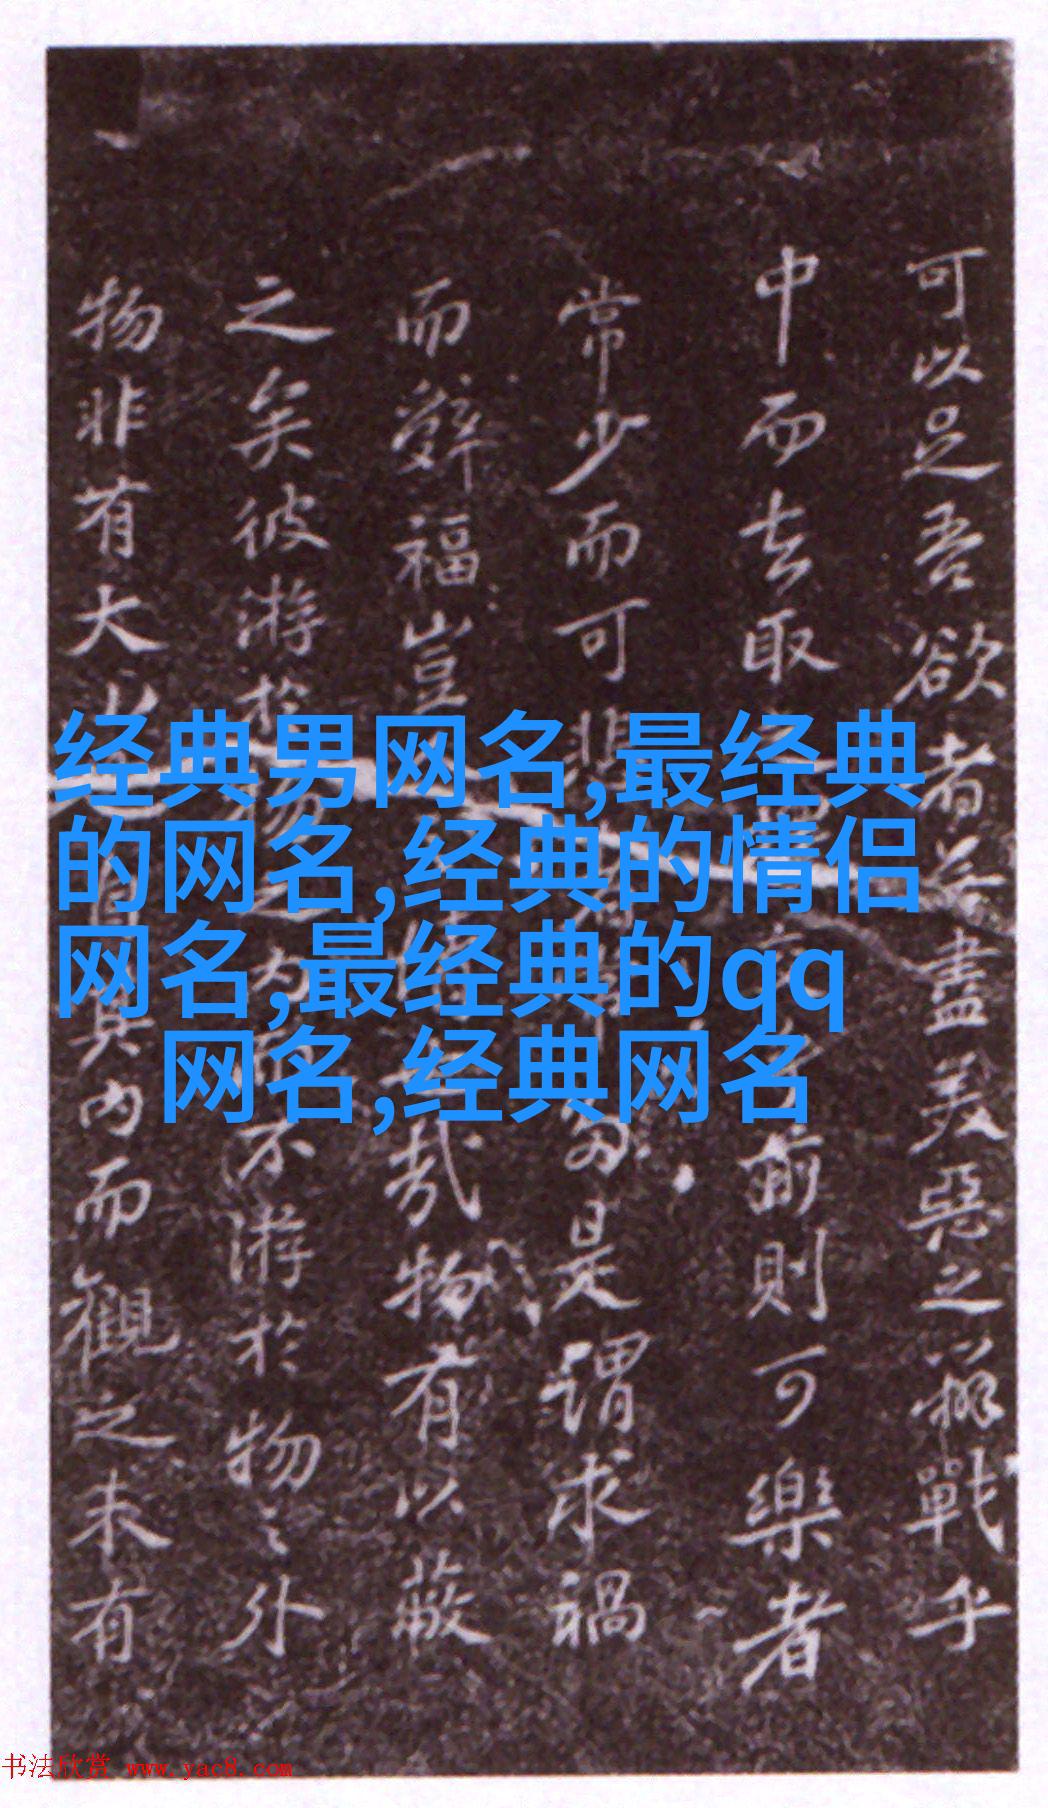 可以足吾欲者盡美惡之辨戰乎
中而去取前則可樂者
常少而可悲是謂求禍
而辭福豈哉物有以蔽
之矣彼游於不游於物之外
物非有大自其内而觀之未有
经典男网名,最经典
的网名,经典的情侣
网名,最经典的qq
网名,经典网名
书法欣赏 www.yac8.com